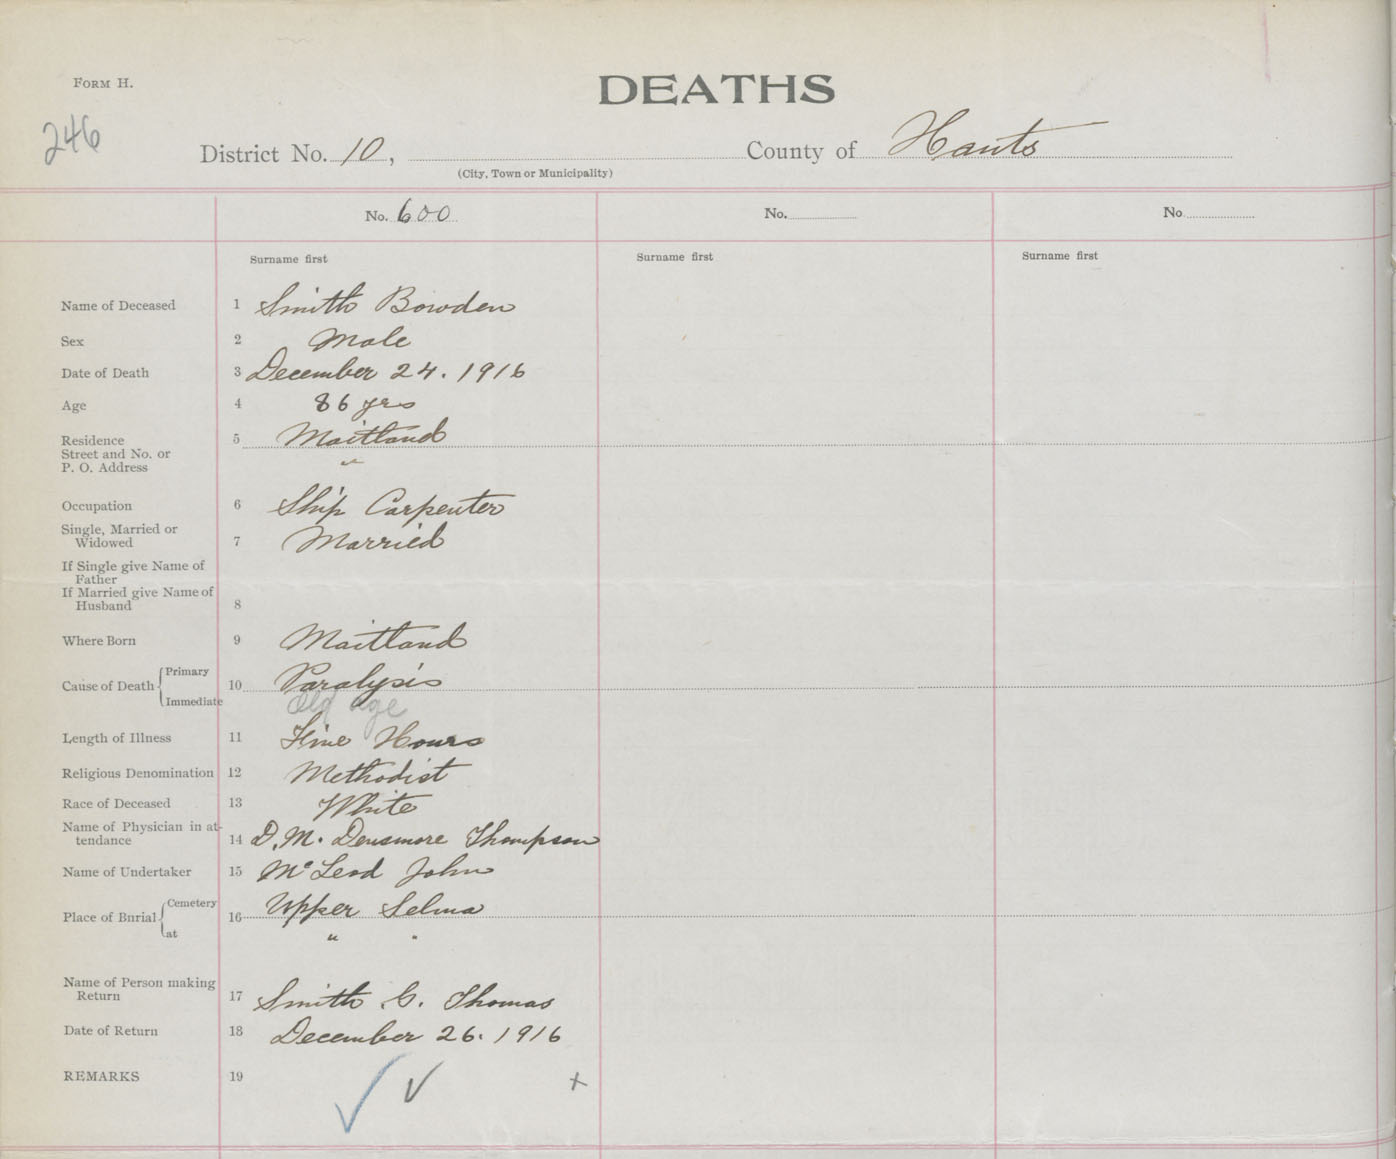 FORM H.
DEATHS
246
District No. 10, County of Hants
(City, Town or Municipality)
No. 600 No. No
Surname first Surname first Surname first
Name of Deceased 1 Smith Bowden
Sex 2 Male
Date of Death 3 December 24. 1916
Age 4 86 yrs
Residence 5 Maitland
Street and No. or
P. O. Address "
Occupation 6 Ship Carpenter
Single, Married or
Widowed 7 Married
If Single give Name of
Father
If Married give Name of
Husband 8
Where Born 9 Maitland
Cause of Death Primary 10 Paralysis
Immediate Old age
Length of Illness 11 Hours
Religious Denomination 12 Methodist
Race of Deceased 13 White
Name of Physician in at-
tendance 14 D. M. Densmore Thompson
Name of Undertaker 15 McLeod John
Place of Burial Cemetery 16 Upper Selma
at " "
Name of Person making
Return 17 Smith G. Thomas
Date of Return 18 December 26. 1916
REMARKS 19